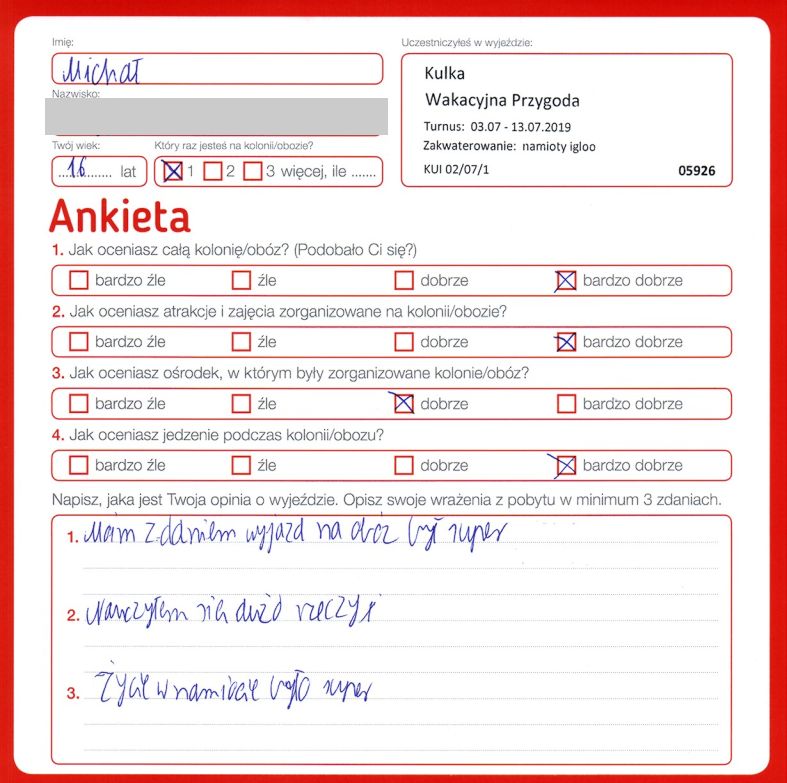 Imię:
Michał
Nazwisko:
Twój wiek:
16 lat
Który raz jesteś na kolonii/obozie?
1 2 3 więcej, ile .......
Uczestniczyłeś w wyjeździe:
Kulka
Wakacyjna Przygoda
Turnus: 03.07 - 13.07.2019
Zakwaterowanie: namioty igloo
KUI 02/07/1 05926
Ankieta
1. Jak oceniasz całą kolonię/obóz? (Podobało Ci się?)
bardzo źle źle dobrze bardzo dobrze
2. Jak oceniasz atrakcje i zajęcia zorganizowane na kolonii/obozie?
bardzo źle źle dobrze bardzo dobrze
3. Jak oceniasz ośrodek, w którym były zorganizowane kolonie/obóz?
bardzo źle źle dobrze bardzo dobrze
4. Jak oceniasz jedzenie podczas kolonii/obozu?
bardzo źle źle dobrze bardzo dobrze
Napisz, jaka jest Twoja opinia o wyjeździe. Opisz swoje wrażenia z pobytu w minimum 3 zdaniach.
1. Moim zdaniem wyjazd na obóz był super
2. Nauczyłem się dużo rzeczy
3. Życie w namiocie było super